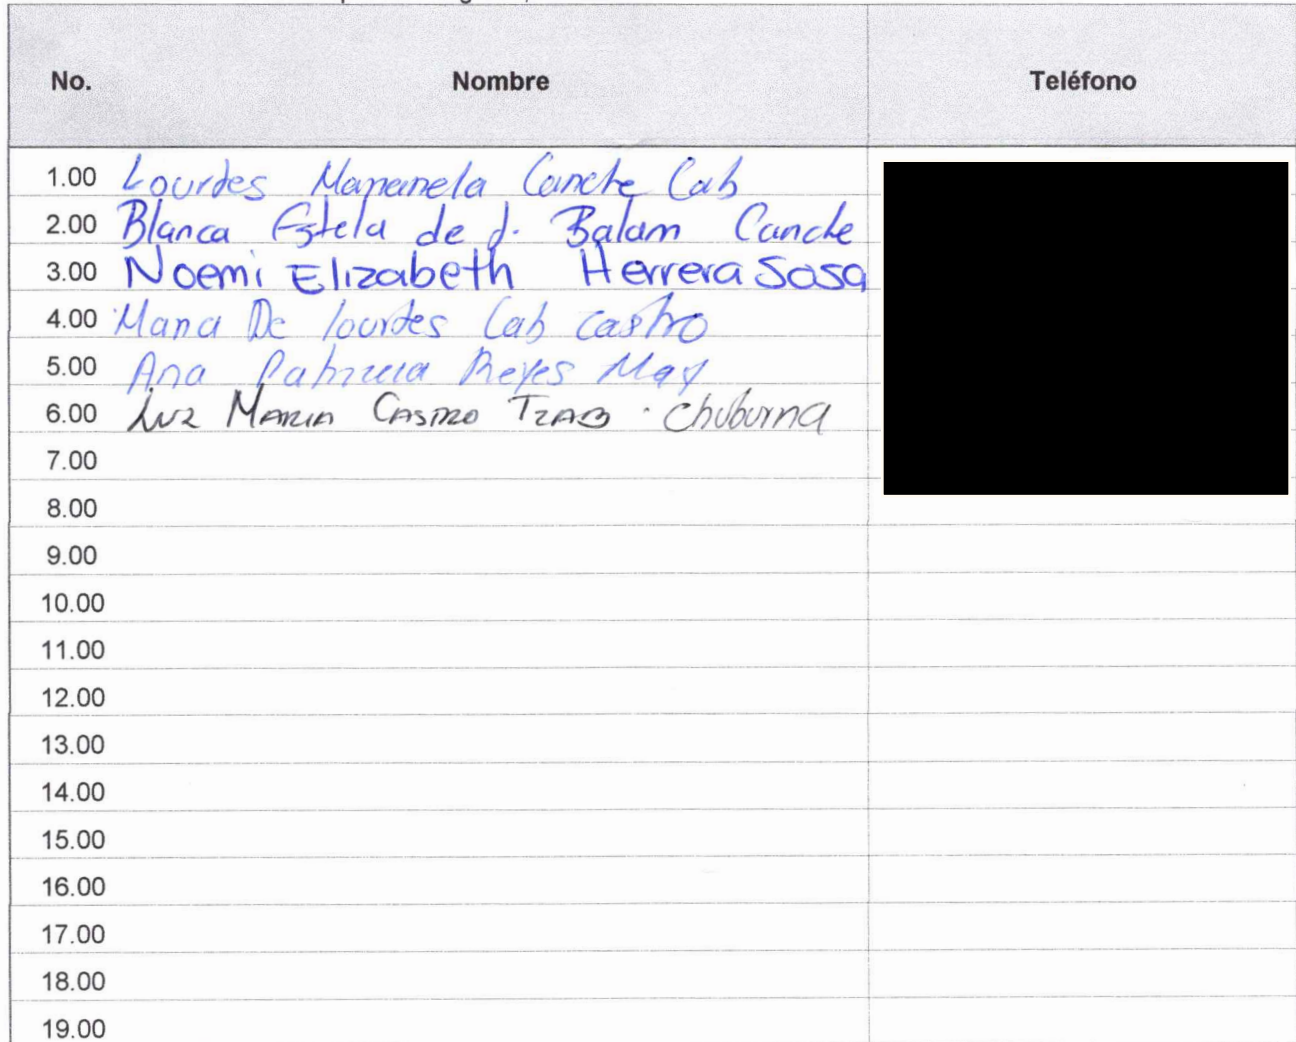 No. Nombre Teléfono
1.00 Lourdes Marianela Canche Cab
2.00 Blanca Estela de J. Balam Canche
3.00 Noemi Elizabeth Herrera Sosa
4.00 Maria De lourdes Cab castro
5.00 Ana Patricia Reyes May
6.00 Luz MARIA CASTRO TZAB . Chuburna
7.00
8.00
9.00
10.00
11.00
12.00
13.00
14.00
15.00
16.00
17.00
18.00
19.00